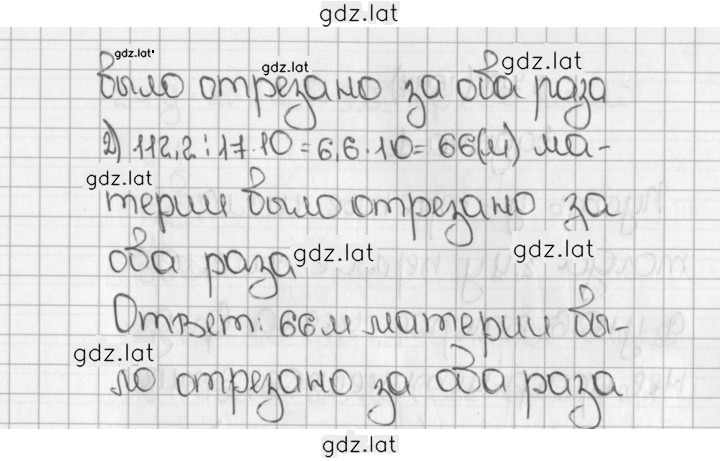 gdz.lat
gdz.lat gdz.lat gdz.lat
было отрезано за оба раза
2) 112,2 : 17 · 10 = 6,6 · 10 = 66(м) ма-
gdz.lat
терии было отрезано за
оба раза gdz.lat gdz.lat
Ответ: 66 м материи бы-
gdz.lat
ло отрезано за оба раза
gdz.lat